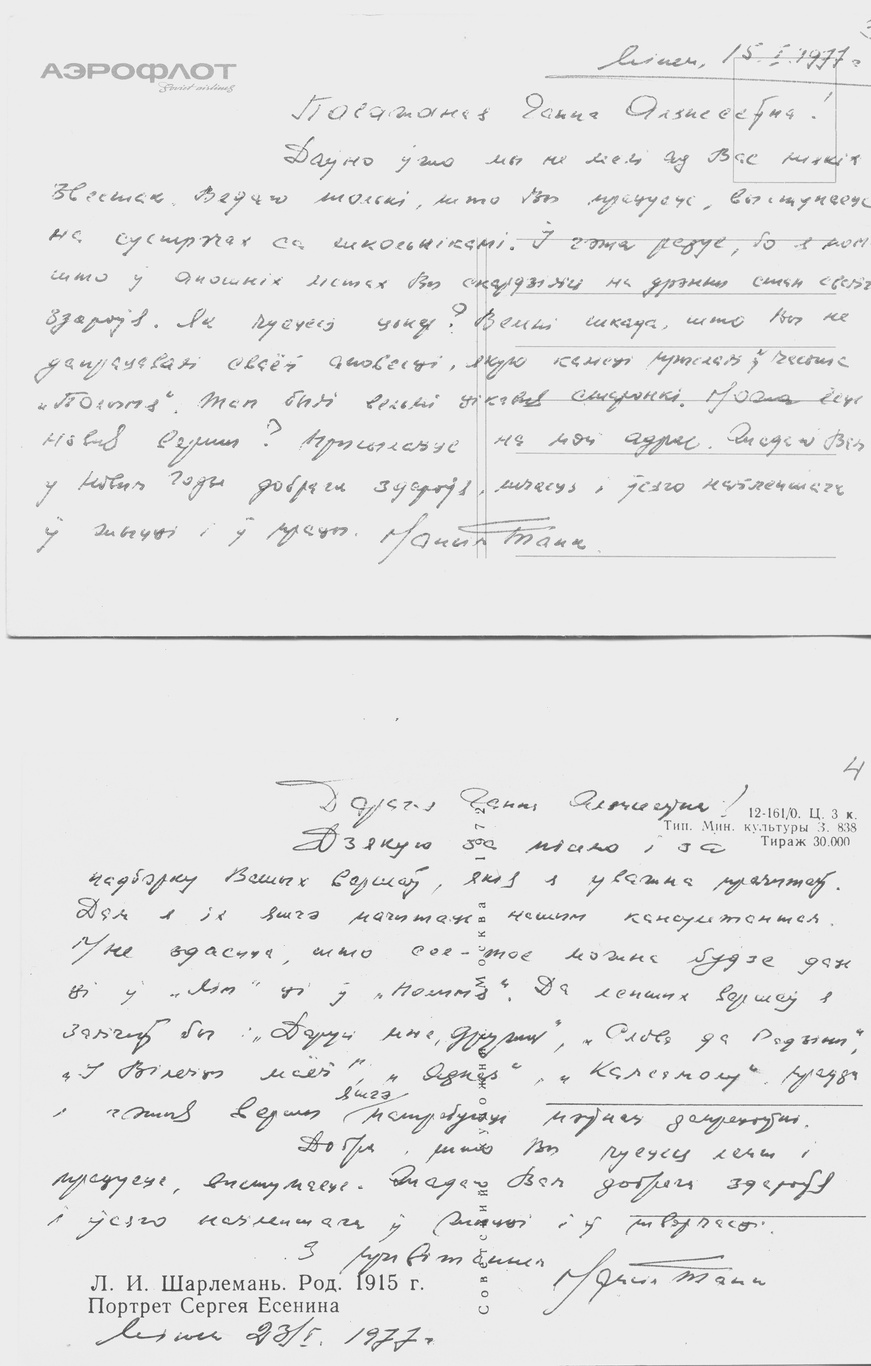 АЭРОФЛОТ
Soviet airlines
Мінск, 15.I.1977 г.
Паважаная Ганна Аляксееўна!
Даўно ўжо мы не мелі ад Вас ніякіх
звестак. Ведаю толькі, што Вы працуеце, выступаеце
на сустрэчах са школьнікамі. І гэта радуе, бо я помн
што ў апошніх лістах Вы скардзіліся на дрэнны стан свайго
здароўя. Як чуецеся цяпер? Вельмі шкада, што Вы не
дапрацавалі сваёй аповесці, якую калісьці прыслалі ў часопіс
„Полымя“. Там былі вельмі цікавыя старонкі. Можа ёсць
новыя вершы? Прысылайце на мой адрас. Жадаю Вам
у Новым годзе добрага здароўя, шчасця і ўсяго найлепшага
ў жыцці і ў працы. Максім Танк
4
Дарагая Ганна Аляксееўна!
12-161/0. Ц. 3 к.
Тип. Мин. культуры З. 838
Тираж 30.000
Дзякую за пісьмо і за
падборку Вашых вершаў, якія я уважна прачытаў.
Дам я іх яшчэ пачытаць нашым кансультантам.
Мне здаецца, што сое-тое можна будзе даць
ці ў „ЛіМ“ ці ў „Полымя“. Да лепшых вершаў я
залічыў бы: „Даруй мне, дружа“, „Слова да Радзімы“,
„З Вілейкі маёй“, „Адная“, „Каласному“. Праўда
і гэтыя вершы яшчэ патрабуюць пэўнай дапрацоўкі.
Добра, што Вы чуецеся лепш і
працуеце, выступаеце. Жадаю Вам добрага здароўя
і ўсяго найлепшага ў жыцці і ў творчасці.
З прывітаннем
Максім Танк
Л. И. Шарлемань. Род. 1915 г.
Портрет Сергея Есенина
Мінск 23/I. 1977 г.
Советский художник Москва 1972